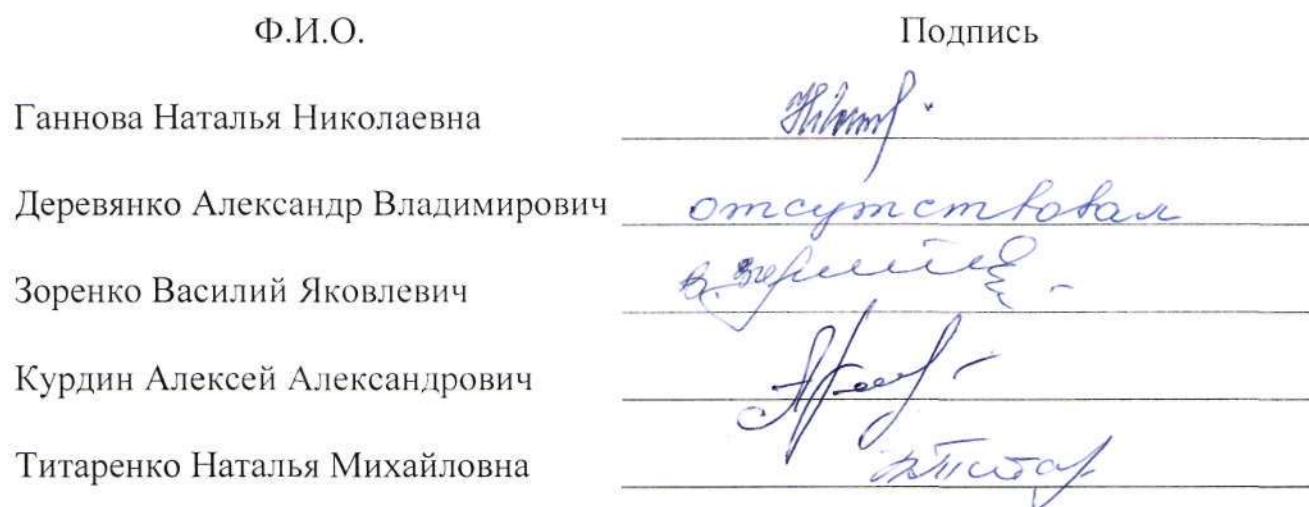 Ф.И.О. Подпись
Ганнова Наталья Николаевна
Деревянко Александр Владимирович отсутствовал
Зоренко Василий Яковлевич
Курдин Алексей Александрович
Титаренко Наталья Михайловна